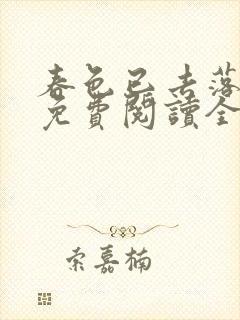 春色已去落
免費閱讀全
索嘉楠